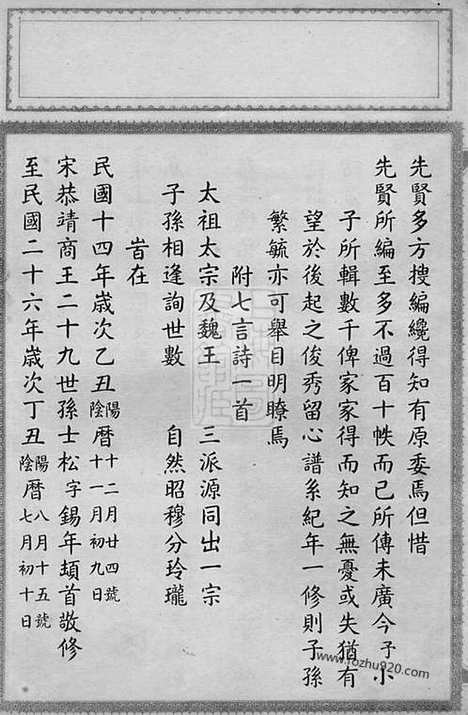 先賢多方搜編纔得知有原委焉但惜
先賢所編至多不過百十帙而已所傳未廣今予小
子所輯數千俾家家得而知之無憂或失猶有
望於後起之俊秀留心譜系紀年一修則子孫
繁毓亦可舉目明瞭焉
附七言詩一首
太祖太宗及魏王 三派源同出一宗
子孫相逢詢世數 自然昭穆分玲瓏
旹在
民國十四年歲次乙丑陽陰曆十二月廿四號十一月初九日
宋恭靖商王二十九世孫士松字錫年頓首敬修
至民國二十六年歲次丁丑陽陰曆八月十五號七月初十日
www.fozhu920.com